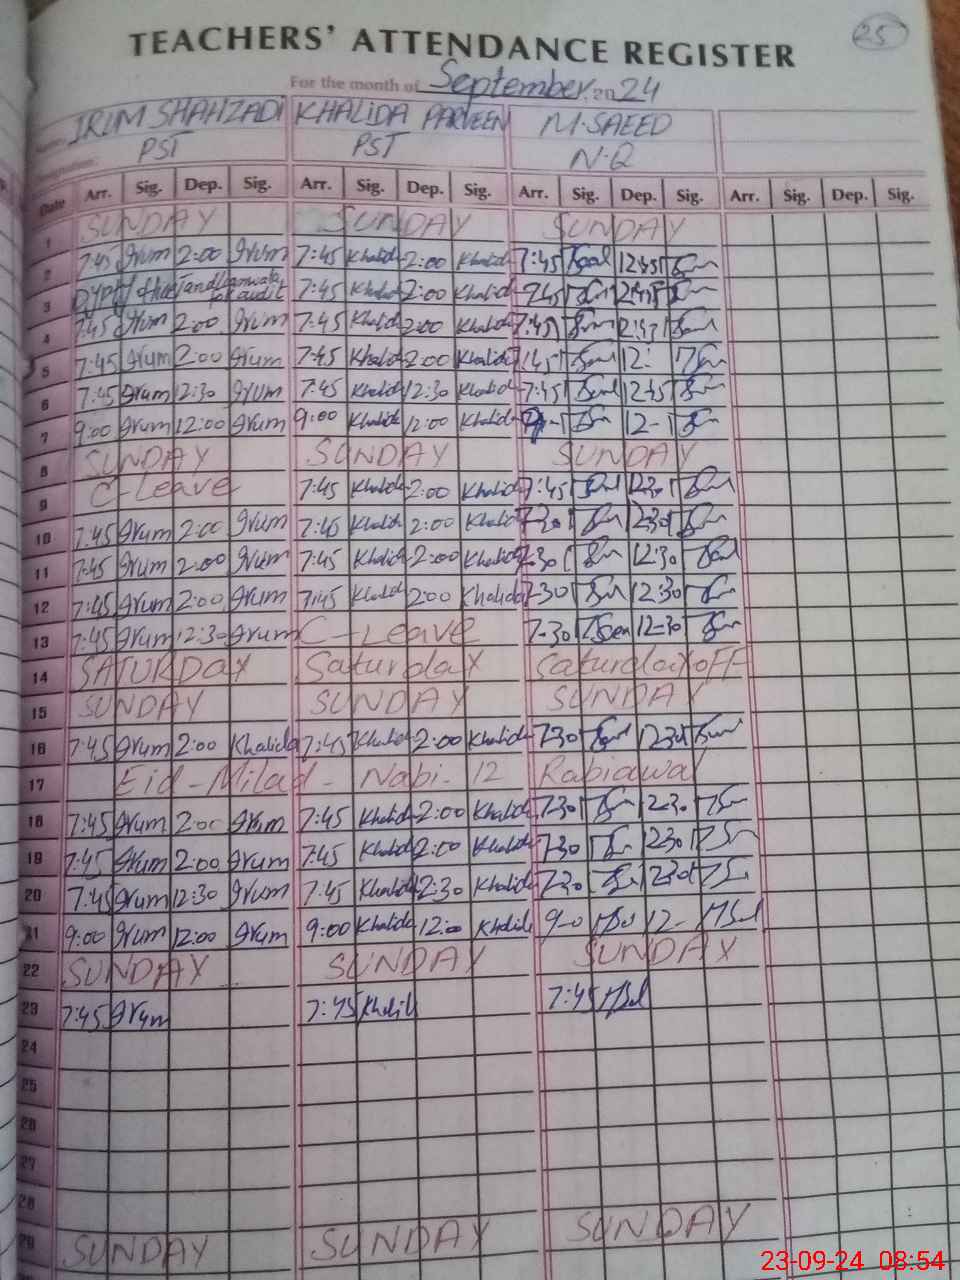 25
TEACHERS' ATTENDANCE REGISTER
For the month of September, 2024
IRUM SHAHZADI KHALIDA PARVEEN M.SAEED
PST PST N.Q
Date Arr. Sig. Dep. Sig. Arr. Sig. Dep. Sig. Arr. Sig. Dep. Sig. Arr. Sig. Dep. Sig.
1 SUNDAY SUNDAY SUNDAY
2 7:45 Irum 2:00 Irum 7:45 Khalida 2:00 Khalida 7:45 12:45
3 office and for audit 7:45 Khalida 2:00 Khalida
4 7:45 Irum 2:00 Irum 7:45 Khalida 2:00 Khalida 7:45
5 7:45 Irum 2:00 Irum 7:45 Khalida 2:00 Khalida 7:45 12:
6 7:45 Irum 12:30 Irum 7:45 Khalida 12:30 Khalida 7:45 12:45
7 9:00 Irum 12:00 Irum 9:00 Khalida 12:00 Khalida 12-
8 SUNDAY SUNDAY SUNDAY
9 C-Leave 7:45 Khalida 2:00 Khalida 7:45 1230
10 7:45 Irum 2:00 Irum 7:45 Khalida 2:00 Khalida 7-30 1230
11 7:45 Irum 2:00 Irum 7:45 Khalida 2:00 Khalida 7-30 12:30
12 7:45 Irum 2:00 Irum 7:45 Khalida 2:00 Khalida 7-30 12:30
13 7:45 Irum 12:30 Irum C-Leave 7-30 12-30
14 SATURDAY Saturday Saturday OFF
15 SUNDAY SUNDAY SUNDAY
16 7:45 Irum 2:00 Khalida 7:45 Khalida 2:00 Khalida 730 1230
17 Eid-Milad-Nabi-12 Rabiawal
18 7:45 Irum 2:00 Irum 7:45 Khalida 2:00 Khalida 7-30 1230
19 7:45 Irum 2:00 Irum 7:45 Khalida 2:00 Khalida 730 1230
20 7:45 Irum 12:30 Irum 7:45 Khalida 12:30 Khalida 730 1230
21 9:00 Irum 12:00 Irum 9:00 Khalida 12:00 Khalida 9-0 12-
22 SUNDAY SUNDAY SUNDAY
23 7:45 Irum 7:45 Khalida 7:45
24
25
26
27
28
29 SUNDAY SUNDAY SUNDAY
23-09-24 08:54